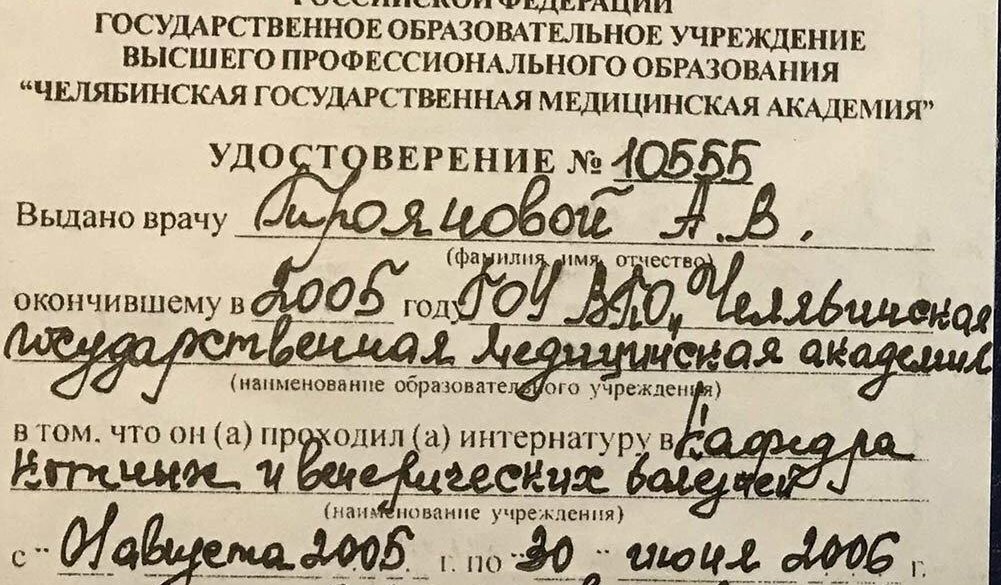 РОССИЙСКОЙ ФЕДЕРАЦИИ
ГОСУДАРСТВЕННОЕ ОБРАЗОВАТЕЛЬНОЕ УЧРЕЖДЕНИЕ
ВЫСШЕГО ПРОФЕССИОНАЛЬНОГО ОБРАЗОВАНИЯ
“ЧЕЛЯБИНСКАЯ ГОСУДАРСТВЕННАЯ МЕДИЦИНСКАЯ АКАДЕМИЯ”
УДОСТОВЕРЕНИЕ № 10555
Выдано врачу Трояновой А.В.
(фамилия, имя, отчество)
окончившему в 2005 году ГОУ ВПО „Челябинская
государственная медицинская академия
(наименование образовательного учреждения)
в том, что он (а) проходил (а) интернатуру в Кафедра
кожных и венерических болезней
(наименование учреждения)
с “01 августа 2005 г. по “30” июня 2006 г.